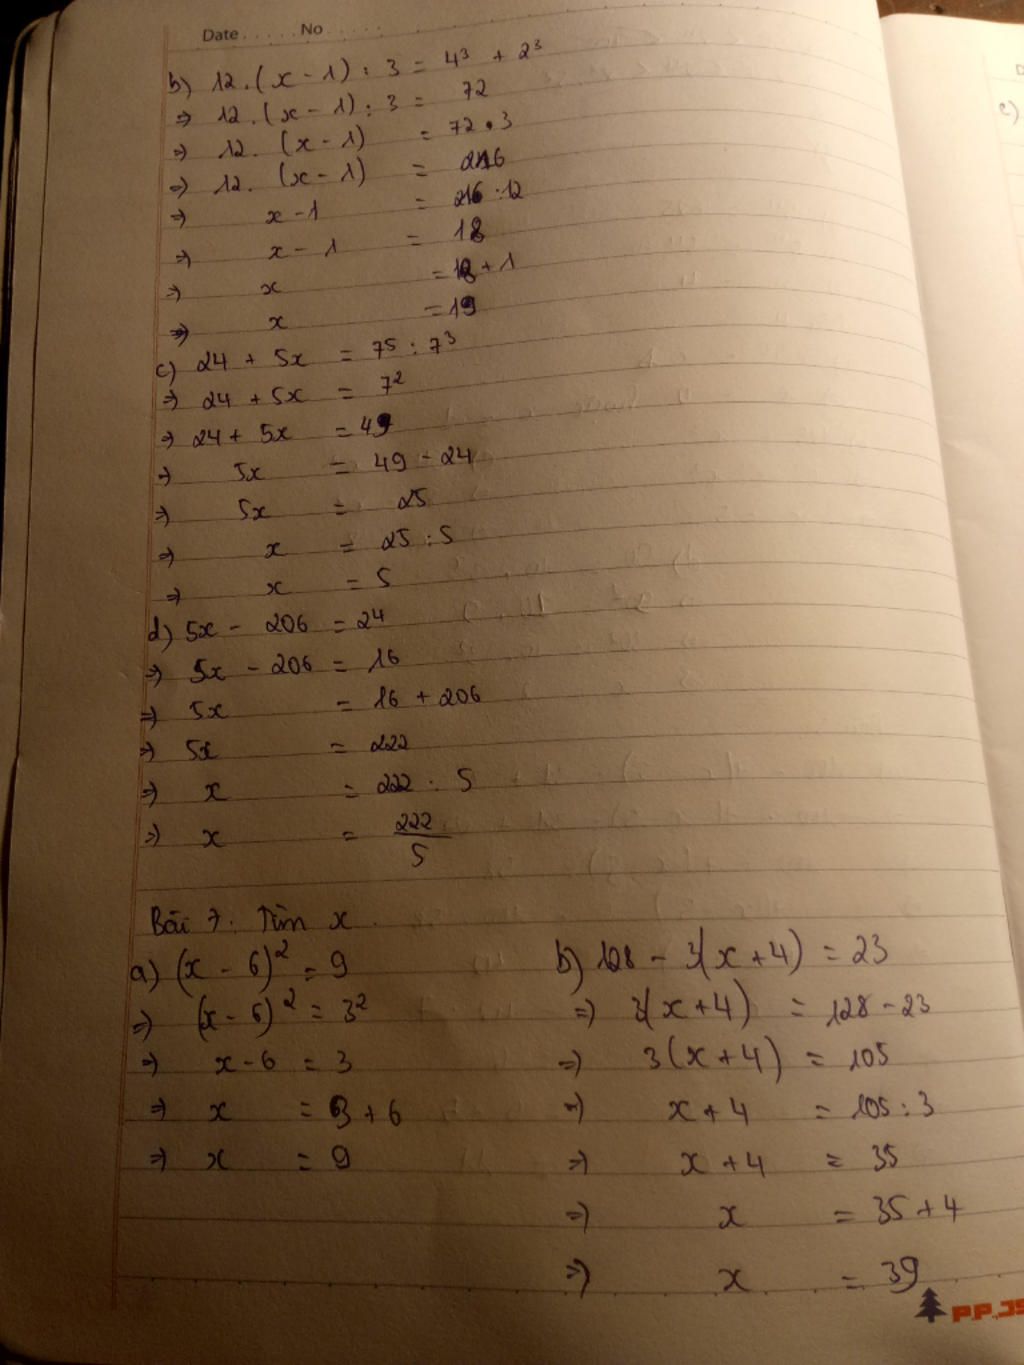 Date ..... No .....
b) 12.(x - 1) : 3 = 4³ + 2³
⇒ 12.(x - 1) : 3 = 72
⇒ 12. (x - 1) = 72 . 3
⇒ 12. (x - 1) = 216
⇒ x - 1 = 216 : 12
⇒ x - 1 = 18
⇒ x = 18 + 1
⇒ x = 19
c) 24 + 5x = 7⁵ : 7³
⇒ 24 + 5x = 7²
⇒ 24 + 5x = 49
⇒ 5x = 49 - 24
⇒ 5x = 25
⇒ x = 25 : 5
⇒ x = 5
d) 5x - 206 = 24
⇒ 5x - 206 = 16
⇒ 5x = 16 + 206
⇒ 5x = 222
⇒ x = 222 : 5
⇒ x = 222/5
Bài 7. Tìm x.
a) (x - 6)² = 9
⇒ (x - 6)² = 3²
⇒ x - 6 = 3
⇒ x = 3 + 6
⇒ x = 9
b) 128 - 3(x + 4) = 23
⇒ 3(x + 4) = 128 - 23
⇒ 3(x + 4) = 105
⇒ x + 4 = 105 : 3
⇒ x + 4 = 35
⇒ x = 35 + 4
⇒ x = 39
c)